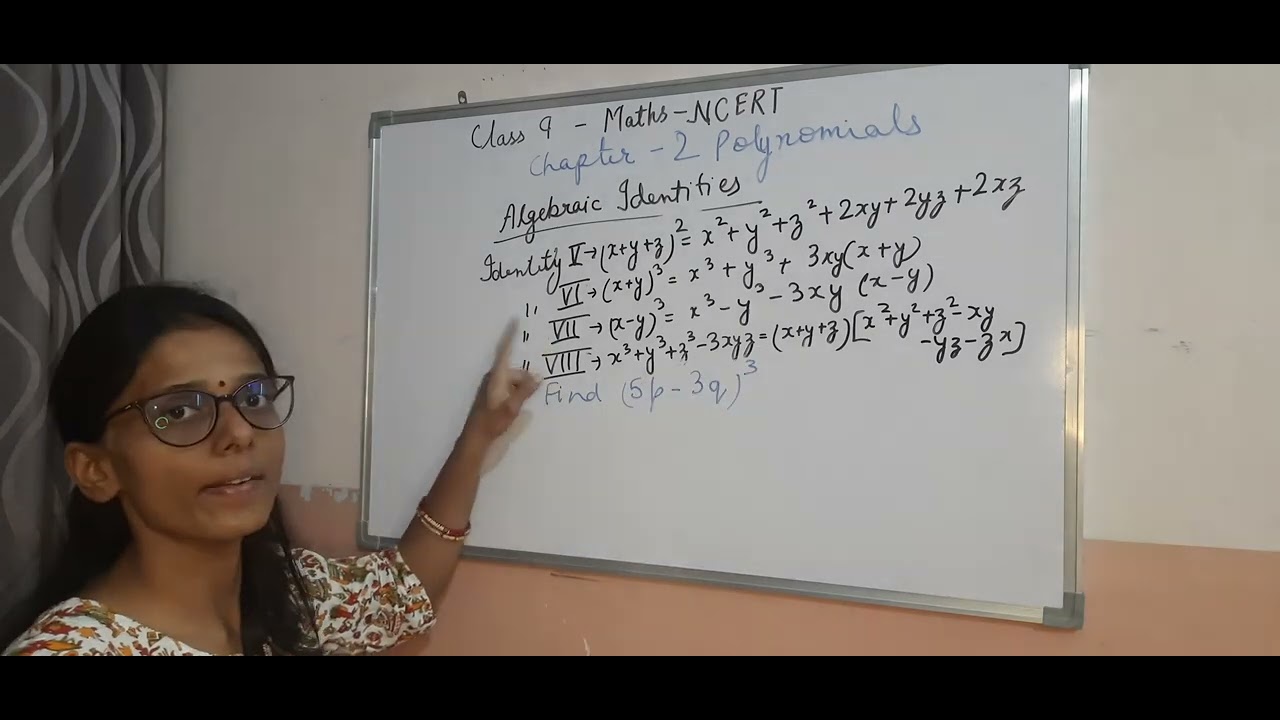 Class 9 - Maths - NCERT
Chapter - 2 Polynomials
Algebraic Identities
Identity V → (x+y+z)² = x² + y² + z² + 2xy + 2yz + 2xz
" VI → (x+y)³ = x³ + y³ + 3xy(x+y)
" VII → (x-y)³ = x³ - y³ - 3xy (x-y)
" VIII → x³+y³+z³-3xyz = (x+y+z)[x²+y²+z²-xy
-yz-zx]
Find (5p - 3q)³